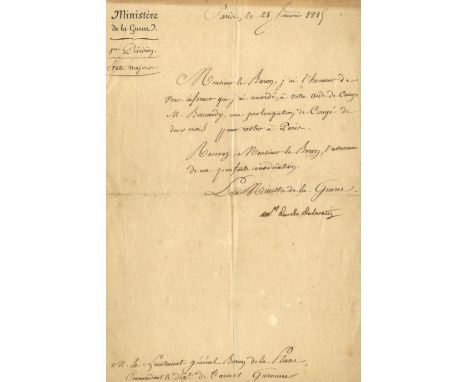 Ministère
de la Guerre.
Division
Etat major
Paris, le 25 Janvier 1815
Monsieur le Baron, j'ai l'honneur de
vous informer que j'ai accordé, à votre aide de Camp
M. une prolongation de Congé de
deux mois pour rester à Paris.
Recevez, Monsieur le Baron, l'assurance
de ma parfaite considération.
Le Ministre de la Guerre.
M. le Lieutenant général Baron de la Plane,
Commandant le de Garonne